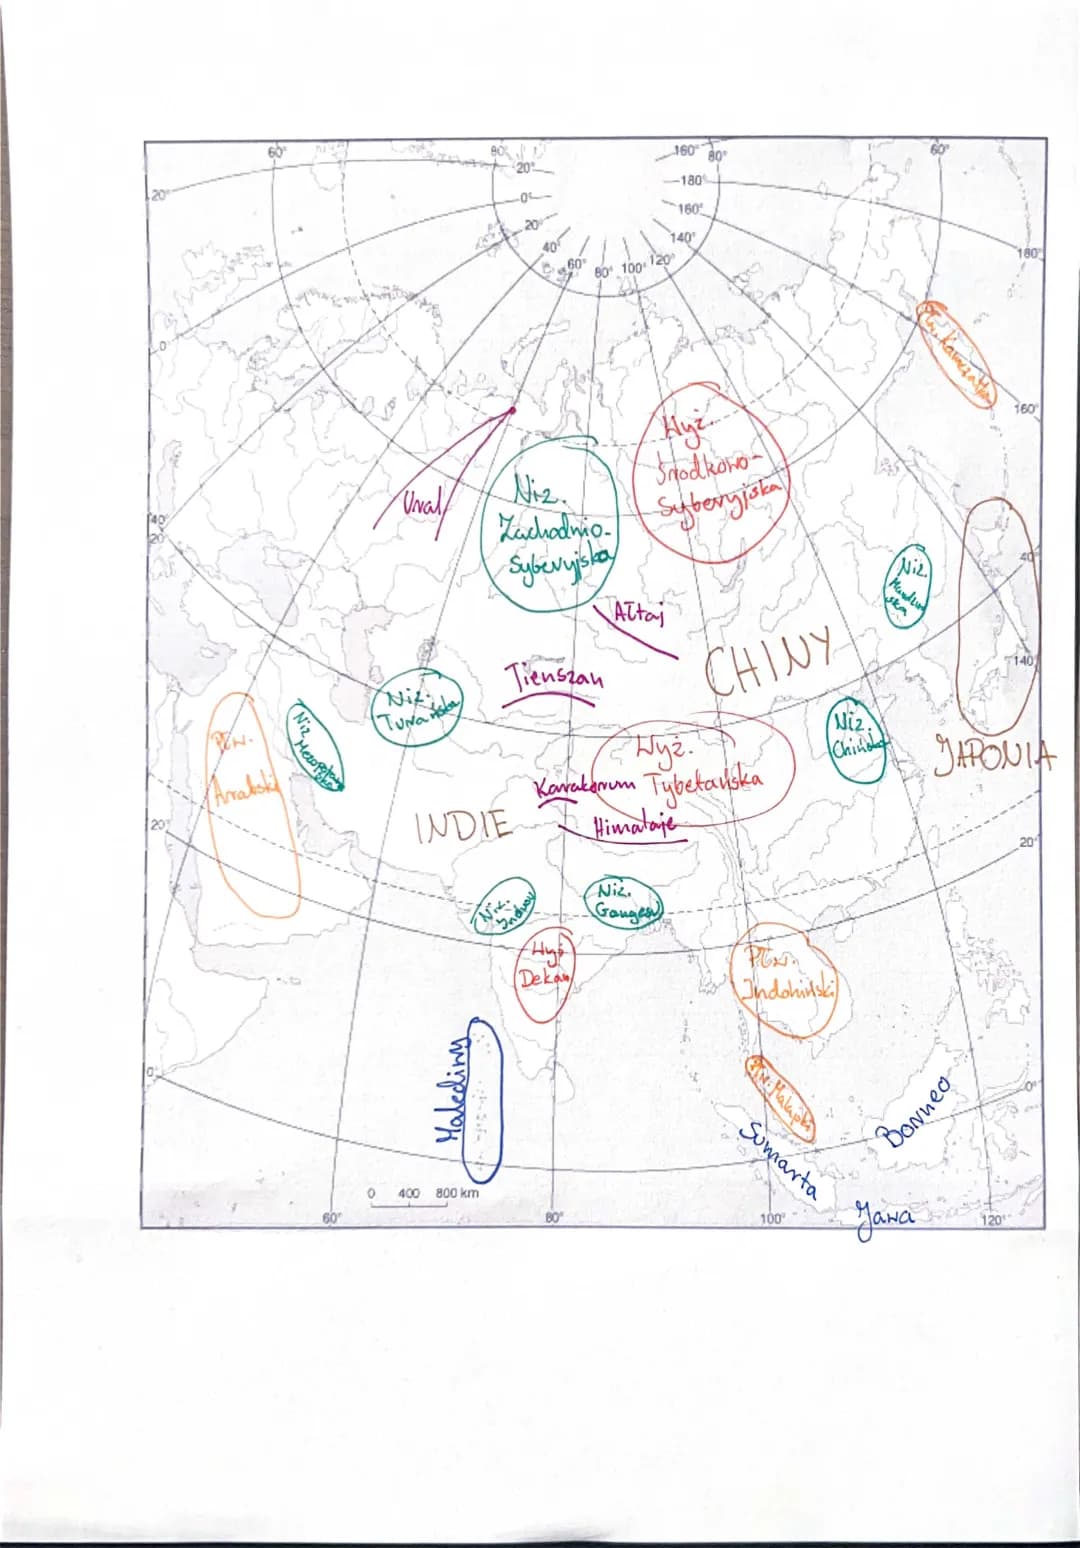 60°
80°
160°
80°
60°
20°
20°
0°
180°
160°
20°
140°
180°
40°
60°
80°
100°
120°
0
Płw. Kamczatka
160°
Wyż.
Środkowo-
Syberyjska
Ural
Niz.
Zachodnio-
Syberyjska
40°
20°
40°
Niz.
Ałtaj
CHINY
140°
Tienszan
Niz.
Turańska
Niz.
Chińska
JAPONIA
Płw.
Arabski
Niz.
Wyż.
Tybetańska
Karakorum
Himalaje
INDIE
20°
20°
Niz.
Indusu
Niz.
Gangesu
Wyż
Dekan
Płw.
Indochiński
Malediwy
Płw. Malajski
0°
0°
Borneo
Sumarta
Jawa
0 400 800 km
60°
80°
100°
120°